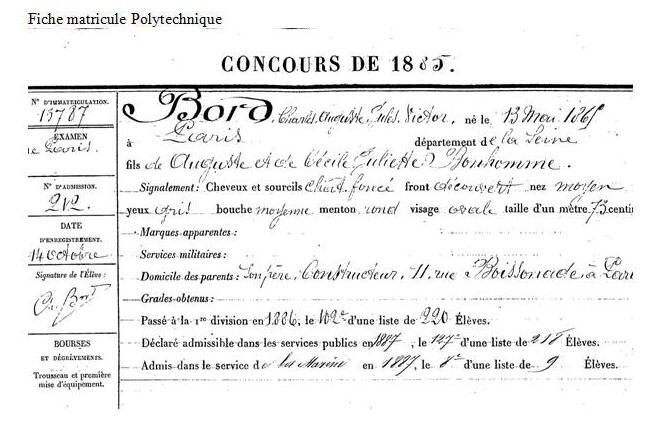 Fiche matricule Polytechnique
CONCOURS DE 1885.
N° D'IMMATRICULATION.
13787
EXAMEN
de Paris.
N° D'ADMISSION.
212.
DATE
D'ENREGISTREMENT.
14 octobre
Signature de l'Élève :
Ch. Bord
BOURSES
ET DÉGRÈVEMENTS.
Trousseau et première
mise d'équipement.
Bord, Charles Auguste Jules Victor, né le 13 Mai 1865
à Paris département de la Seine
fils de Auguste et de Cécile Juliette Bonhomme.
Signalement : Cheveux et sourcils chât. foncé front découvert nez moyen
yeux gris bouche moyenne menton rond visage ovale taille d'un mètre 73 centi
Marques apparentes :
Services militaires :
Domicile des parents : Son père, Constructeur, 11 rue Boissonade à Pari
Grades obtenus :
Passé à la 1re division en 1886, le 102e d'une liste de 220 Élèves.
Déclaré admissible dans les services publics en 1887, le 127e d'une liste de 218 Élèves.
Admis dans le service de la Marine en 1887, le 8e d'une liste de 9 Élèves.